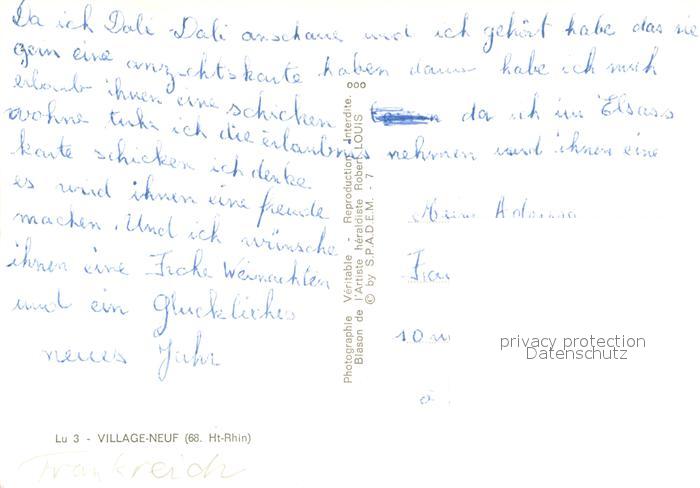 Da ich Dali Dali anschaue und ich gehört habe das sie
gern eine anzichtskarte haben dann habe ich mich
erlaub ihnen eine schicken da ich im Elsass
wohne tuhr ich die erlaubnis nehmen und ihnen eine
karte schicken ich denke
es wird ihnen eine freude
machen. Und ich wünsche
ihnen eine Frohe Weinachten
und ein Gluckliches
neues Jahr
Meine Adresse
Frau
10
Photographie Véritable - Reproduction Interdite.
Blason de l'Artiste héraldiste Robert LOUIS
© by S.P.A.D.E.M. - 7
privacy protection
Datenschutz
Lu 3 - VILLAGE-NEUF (68. Ht-Rhin)
Frankreich